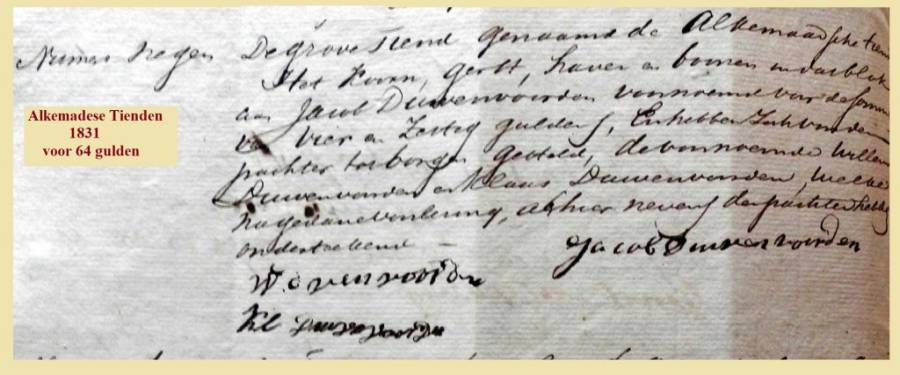 Alkemadese Tienden
1831
voor 64 gulden
Numero Negen De grove Tiend genaamd de Alkemaadsche tiend
Het Koorn, gerst, haver en boonen in dat blok
aan Jacob Duivenvoorden voornoemd voor de somma
van Vier en Zestig guldens, En hebben
pachter tot borgen gesteld, de voornoemde Willem
Duivenvoorden en Klaas Duivenvoorden, welke
na gedane voorlezing, alhier nevens den pachter hebben
ondertekend —
Jacob Duivenvoorden
W. D venvoorden
Kl Duivenvoorden